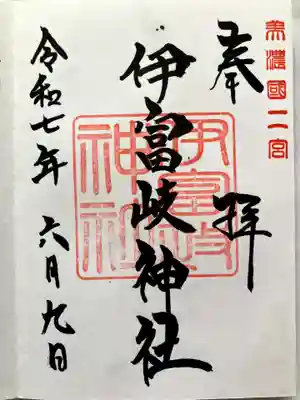 美濃國二宮
奉拝
伊富岐神社
伊富岐
神社
令和七年六月九日